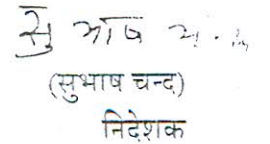 सुभाष
(सुभाष चन्द)
निदेशक